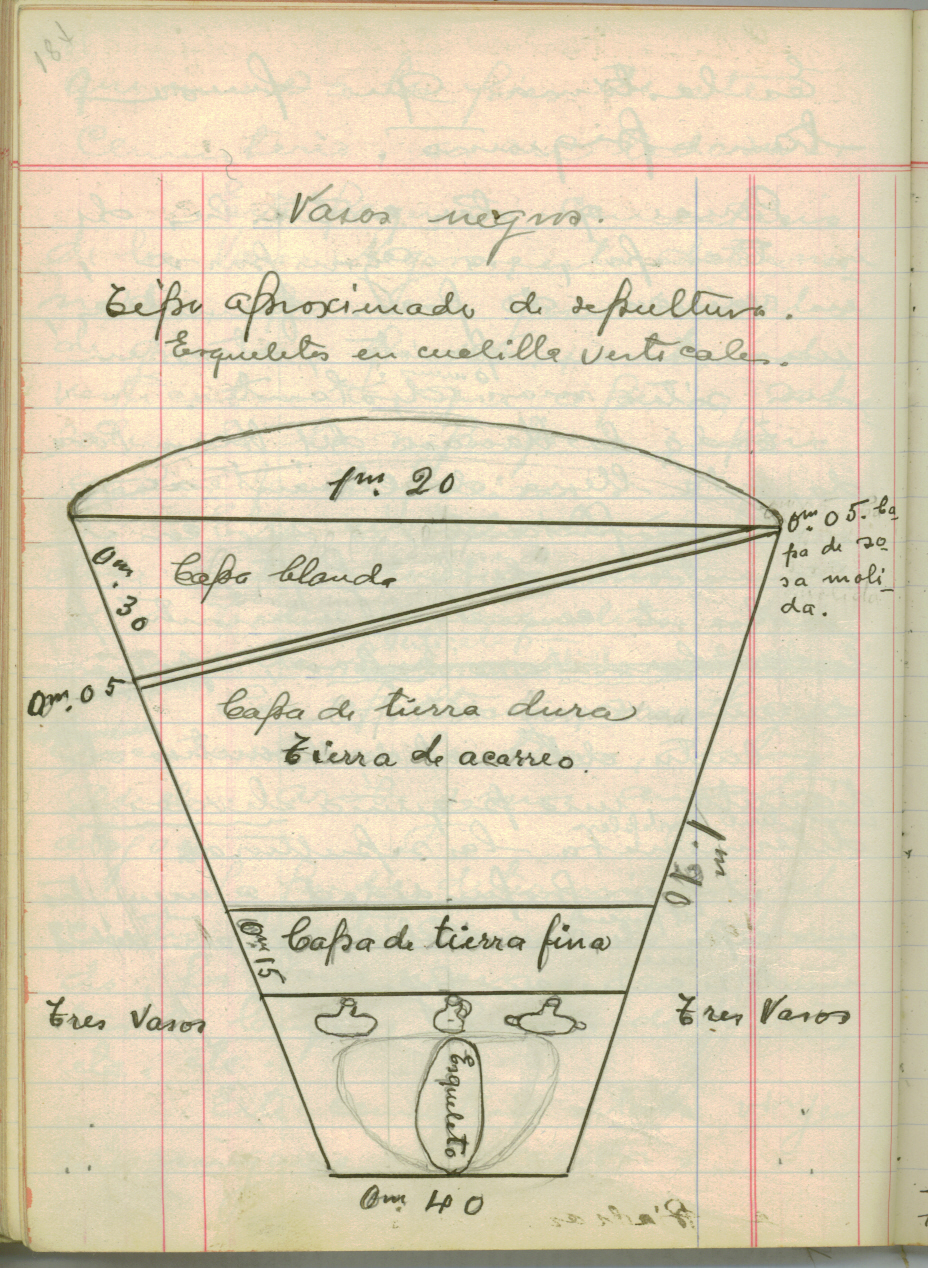 184
Vasos negros.
Tipo aproximado de sepultura.
Esqueletos en cuclilla verticales.
1m. 20
0m. 05. Ca-
pa de zo
sa moli-
da.
0m. 30
Capa blanda
0m. 05
Capa de tierra dura
Tierra de acarreo.
1m. 90
0m 15
Capa de tierra fina
Tres Vasos
Tres Vasos
Esqueleto
0m 40